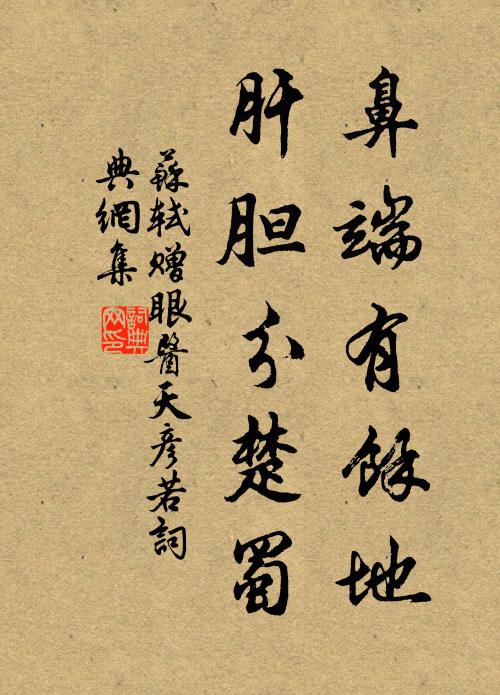 鼻端有餘地
肝胆分楚蜀
蘇軾贈眼醫天彥若詞
典網集
詞典
网印